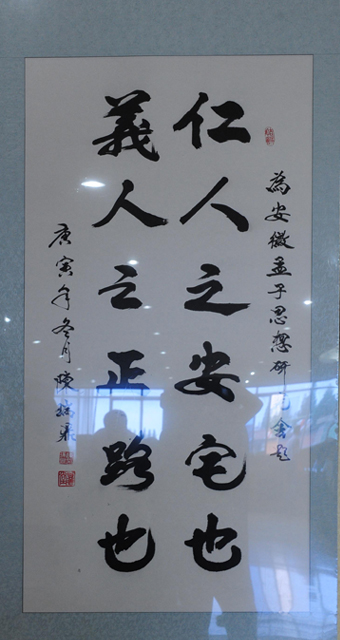 為安徽孟子思想研究會題
仁人之安宅也
義人之正路也
庚寅年冬月陳